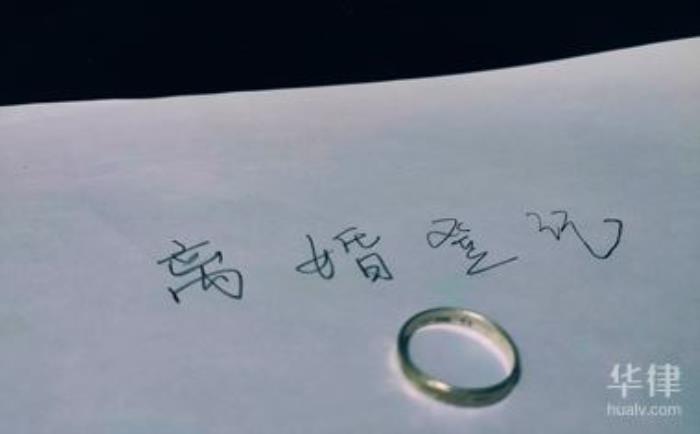 离婚登记
华律
hualv.com